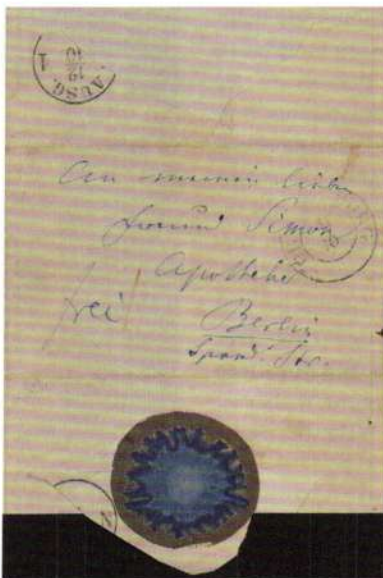 AUSG. 1
12
10
An meinen lieben
Freund Simon
Apotheke
frei
Berlin
Spand. Str.